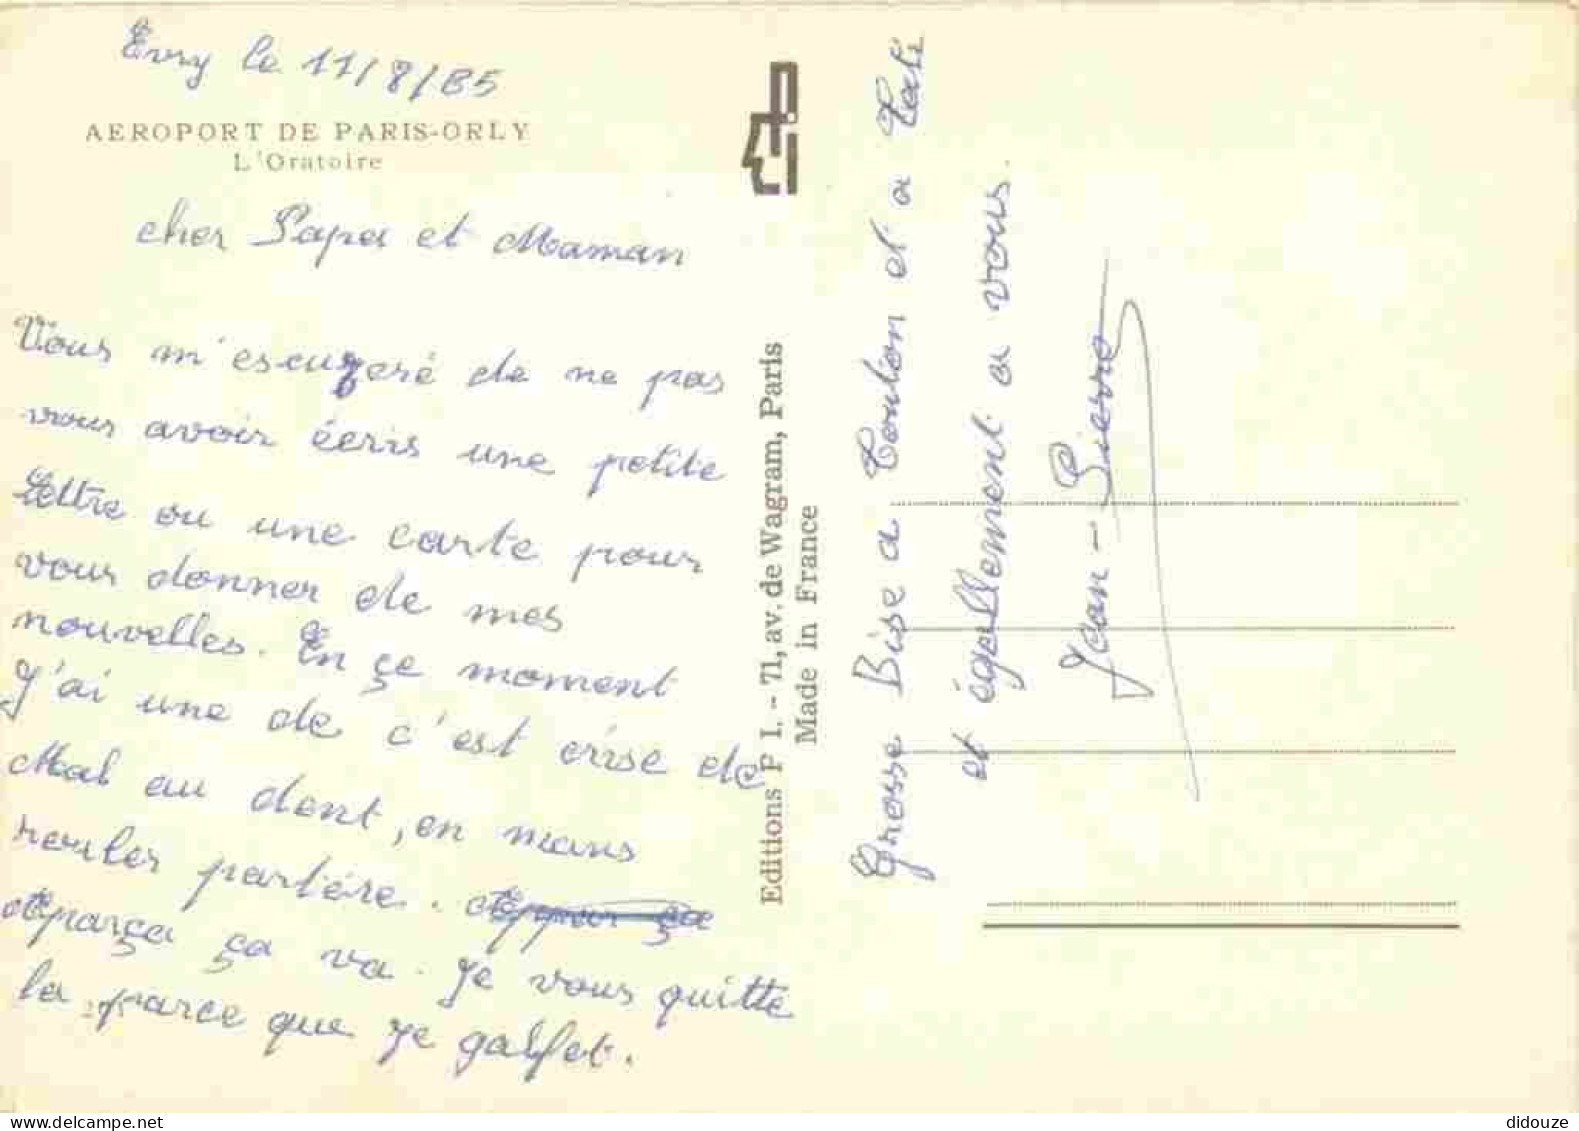 Evry le 11/8/85
AEROPORT DE PARIS-ORLY
L'Oratoire
cher Papa et Maman
Vous m'escuzeré de ne pas
vous avoir écris une petite
Lettre ou une carte pour
vous donner de mes
nouvelles. En çe moment
J'ai une de c'est crise de
Mal au dent, en mans
rouler partére.
Aparça ça va. Je vous quitte
la parce que je
Editions P I. - 71, av. de Wagram, Paris
Made in France
Grosse Bise a Toulon et a Tati
et égallement a vous.
Jean-Pierre
delcampe.net
didouze